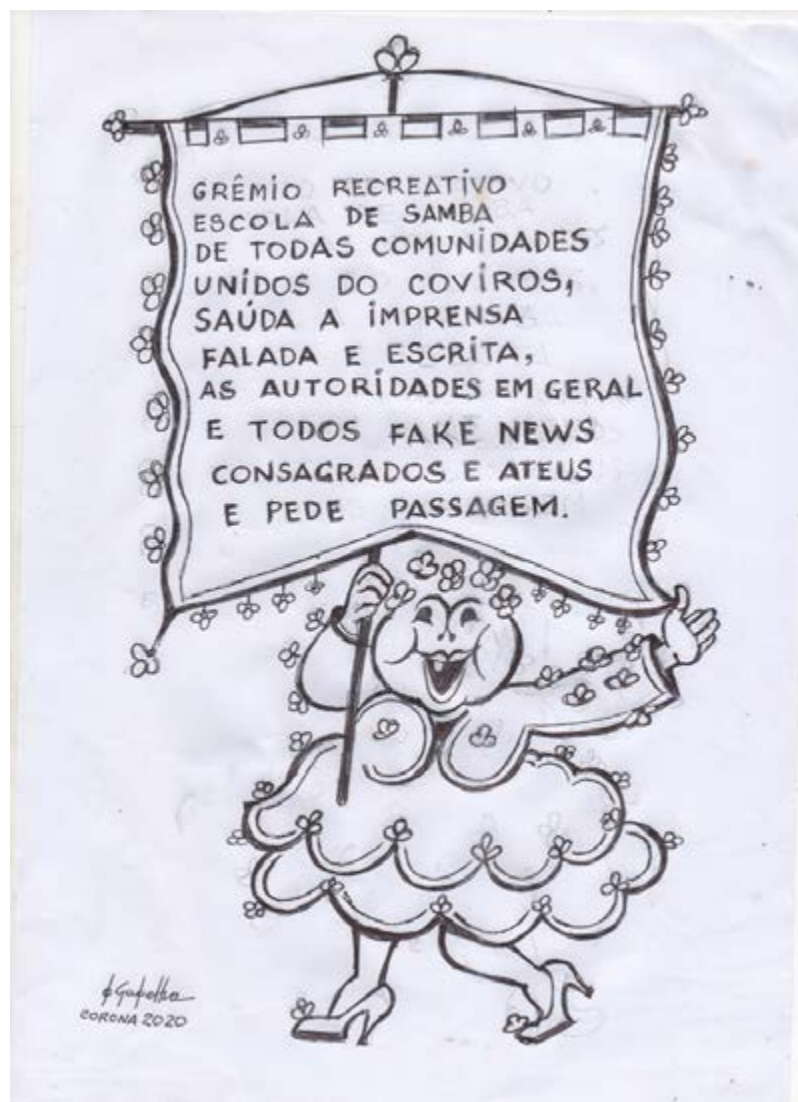 GRÊMIO RECREATIVO
ESCOLA DE SAMBA
DE TODAS COMUNIDADES
UNIDOS DO COVIROS,
SAÚDA A IMPRENSA
FALADA E ESCRITA,
AS AUTORIDADES EM GERAL
E TODOS FAKE NEWS
CONSAGRADOS E ATEUS
E PEDE PASSAGEM.
CORONA 2020